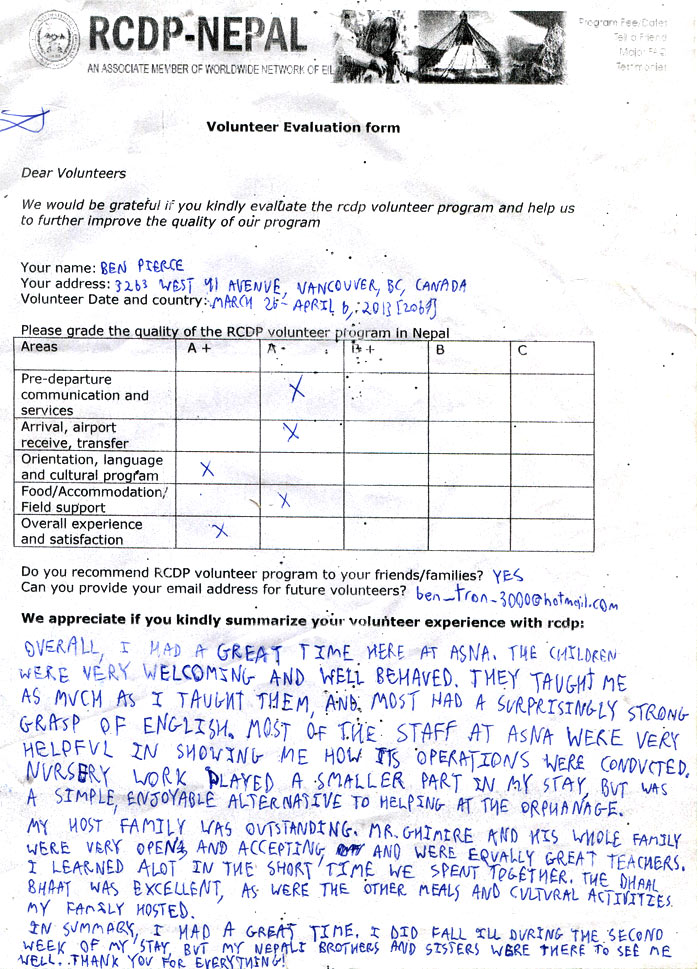 RCDP-NEPAL
AN ASSOCIATE MEMBER OF WORLDWIDE NETWORK OF EIL
Program Fee/Dates
Tell a Friend
Testimonies
Volunteer Evaluation form
Dear Volunteers
We would be grateful if you kindly evaluate the rcdp volunteer program and help us
to further improve the quality of our program
Your name: BEN PIERCE
Your address: 3263 WEST 41 AVENUE, VANCOUVER, BC, CANADA
Volunteer Date and country: MARCH 26 - APRIL 6, 2013 [2069]
Please grade the quality of the RCDP volunteer program in Nepal
Areas A + A - B + B C
Pre-departure
communication and
services X
Arrival, airport
receive, transfer X
Orientation, language
and cultural program X
Food/Accommodation/
Field support X
Overall experience
and satisfaction X
Do you recommend RCDP volunteer program to your friends/families? YES
Can you provide your email address for future volunteers? ben_tron_3000@hotmail.com
We appreciate if you kindly summarize your volunteer experience with rcdp:
OVERALL, I HAD A GREAT TIME HERE AT ASNA. THE CHILDREN
WERE VERY WELCOMING AND WELL BEHAVED. THEY TAUGHT ME
AS MUCH AS I TAUGHT THEM, AND MOST HAD A SURPRISINGLY STRONG
GRASP OF ENGLISH. MOST OF THE STAFF AT ASNA WERE VERY
HELPFUL IN SHOWING ME HOW ITS OPERATIONS WERE CONDUCTED.
NURSERY WORK PLAYED A SMALLER PART IN MY STAY, BUT WAS
A SIMPLE, ENJOYABLE ALTERNATIVE TO HELPING AT THE ORPHANAGE.
MY HOST FAMILY WAS OUTSTANDING. MR. GHIMIRE AND HIS WHOLE FAMILY
WERE VERY OPEN, AND ACCEPTING AND WERE EQUALLY GREAT TEACHERS.
I LEARNED ALOT IN THE SHORT TIME WE SPENT TOGETHER. THE DHAAL
BHAAT WAS EXCELLENT, AS WERE THE OTHER MEALS AND CULTURAL ACTIVITIES
MY FAMILY HOSTED.
IN SUMMARY, I HAD A GREAT TIME. I DID FALL ILL DURING THE SECOND
WEEK OF MY STAY, BUT MY NEPALI BROTHERS AND SISTERS WERE THERE TO SEE ME
WELL. THANK YOU FOR EVERYTHING!